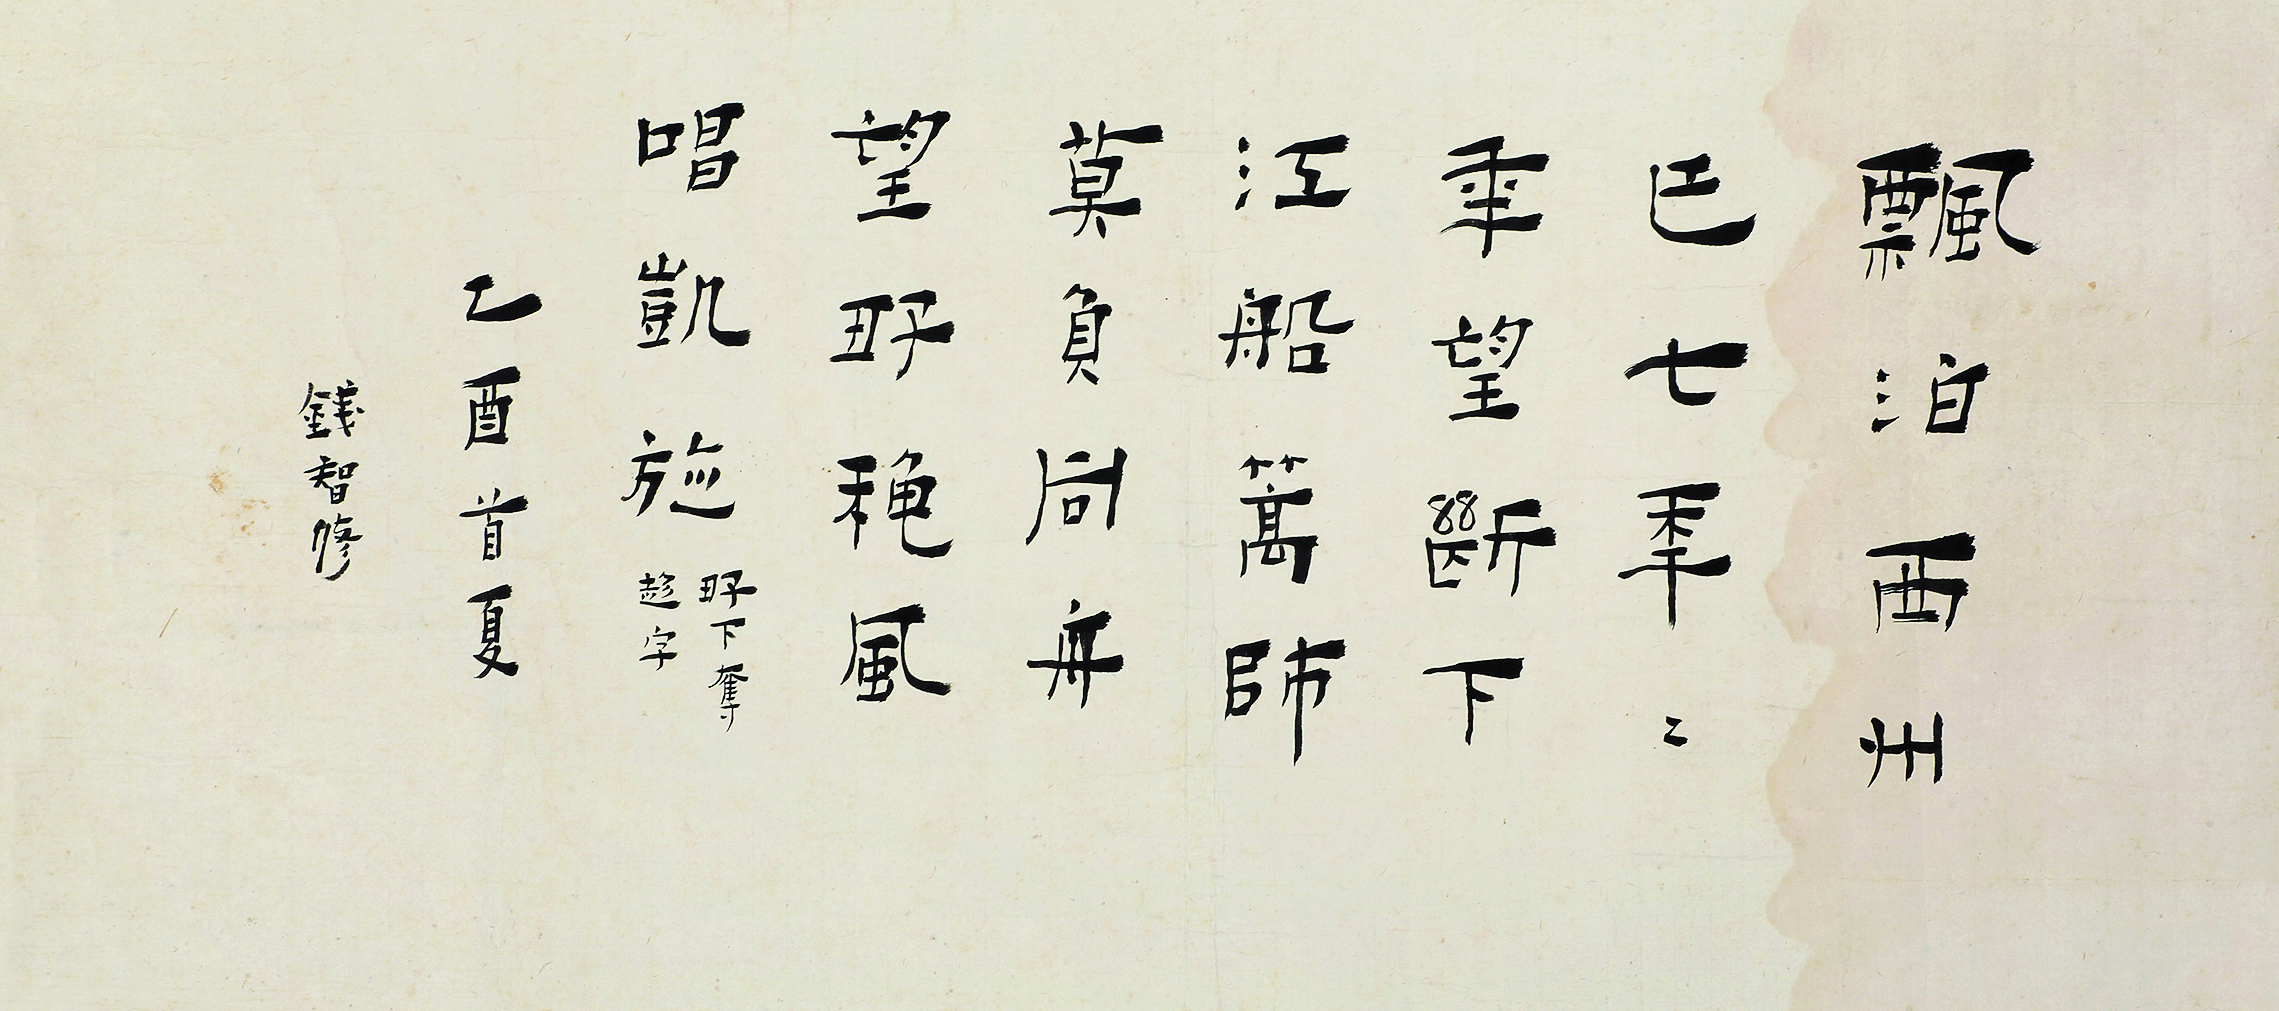 飄泊西州
已七秊〻
年望斷下
江船篙師
莫負同舟
望好穐風
唱凱旋
好下奪
趁字
乙酉首夏
錢智修